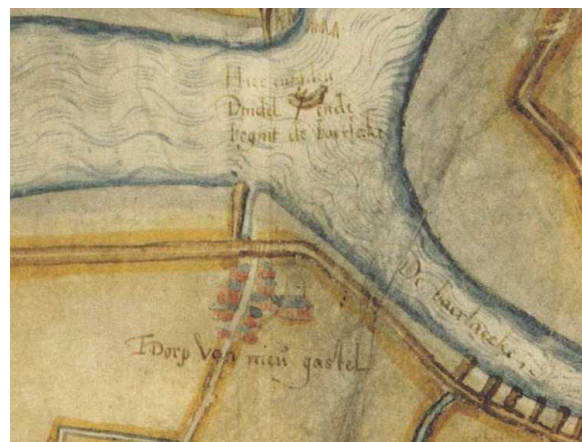 Hier
Dintel ende
begint de baerlecke
De baerlaecke
TDorp Van nieu gastel